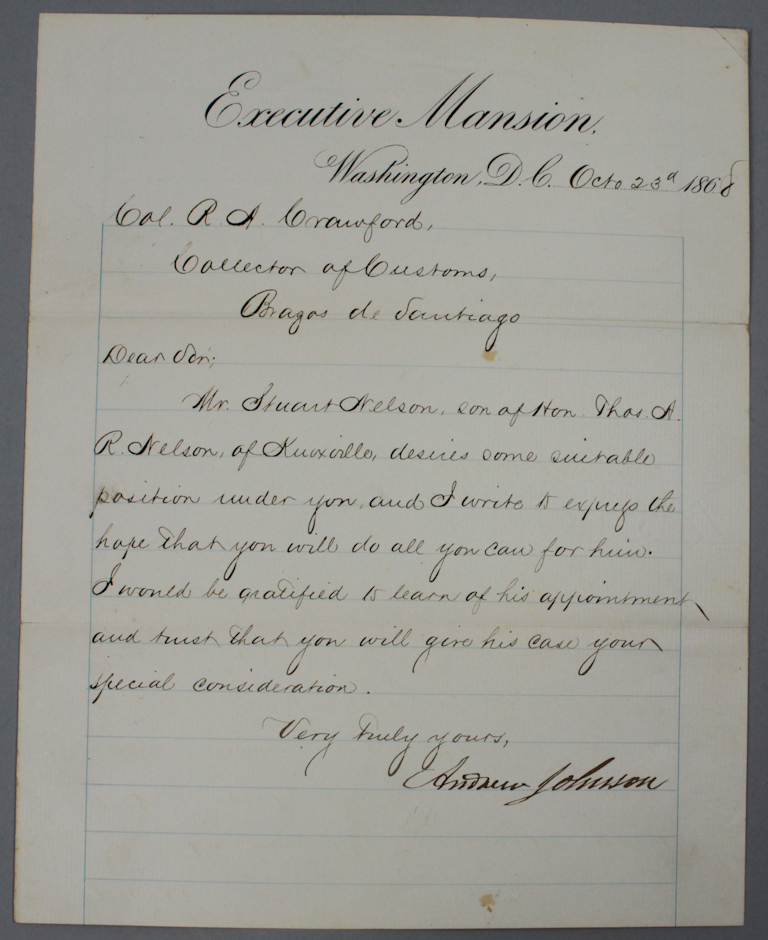 Executive Mansion,
Washington, D.C. Octo 23d 1868
Col. R. A. Crawford,
Collector of Customs,
Bragos de Santiago
Dear Sir;
Mr. Stuart Nelson, son of Hon. Thos. A.
R. Nelson, of Knoxville, desires some suitable
position under you, and I write to express the
hope that you will do all you can for him.
I would be gratified to learn of his appointment
and trust that you will give his case your
special consideration.
Very truly yours,
Andrew Johnson